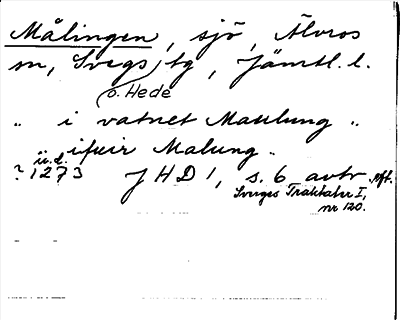 Målingen, sjö, Älvros
sn, Svegs tg, Jämtl. l.
o. Hede
„ i vatnet Maklung „
ifuir Malung.
u.d.
? 1273 JHD 1, s. 6 avtr. Aft.
Sveriges Traktater I,
nr 120.